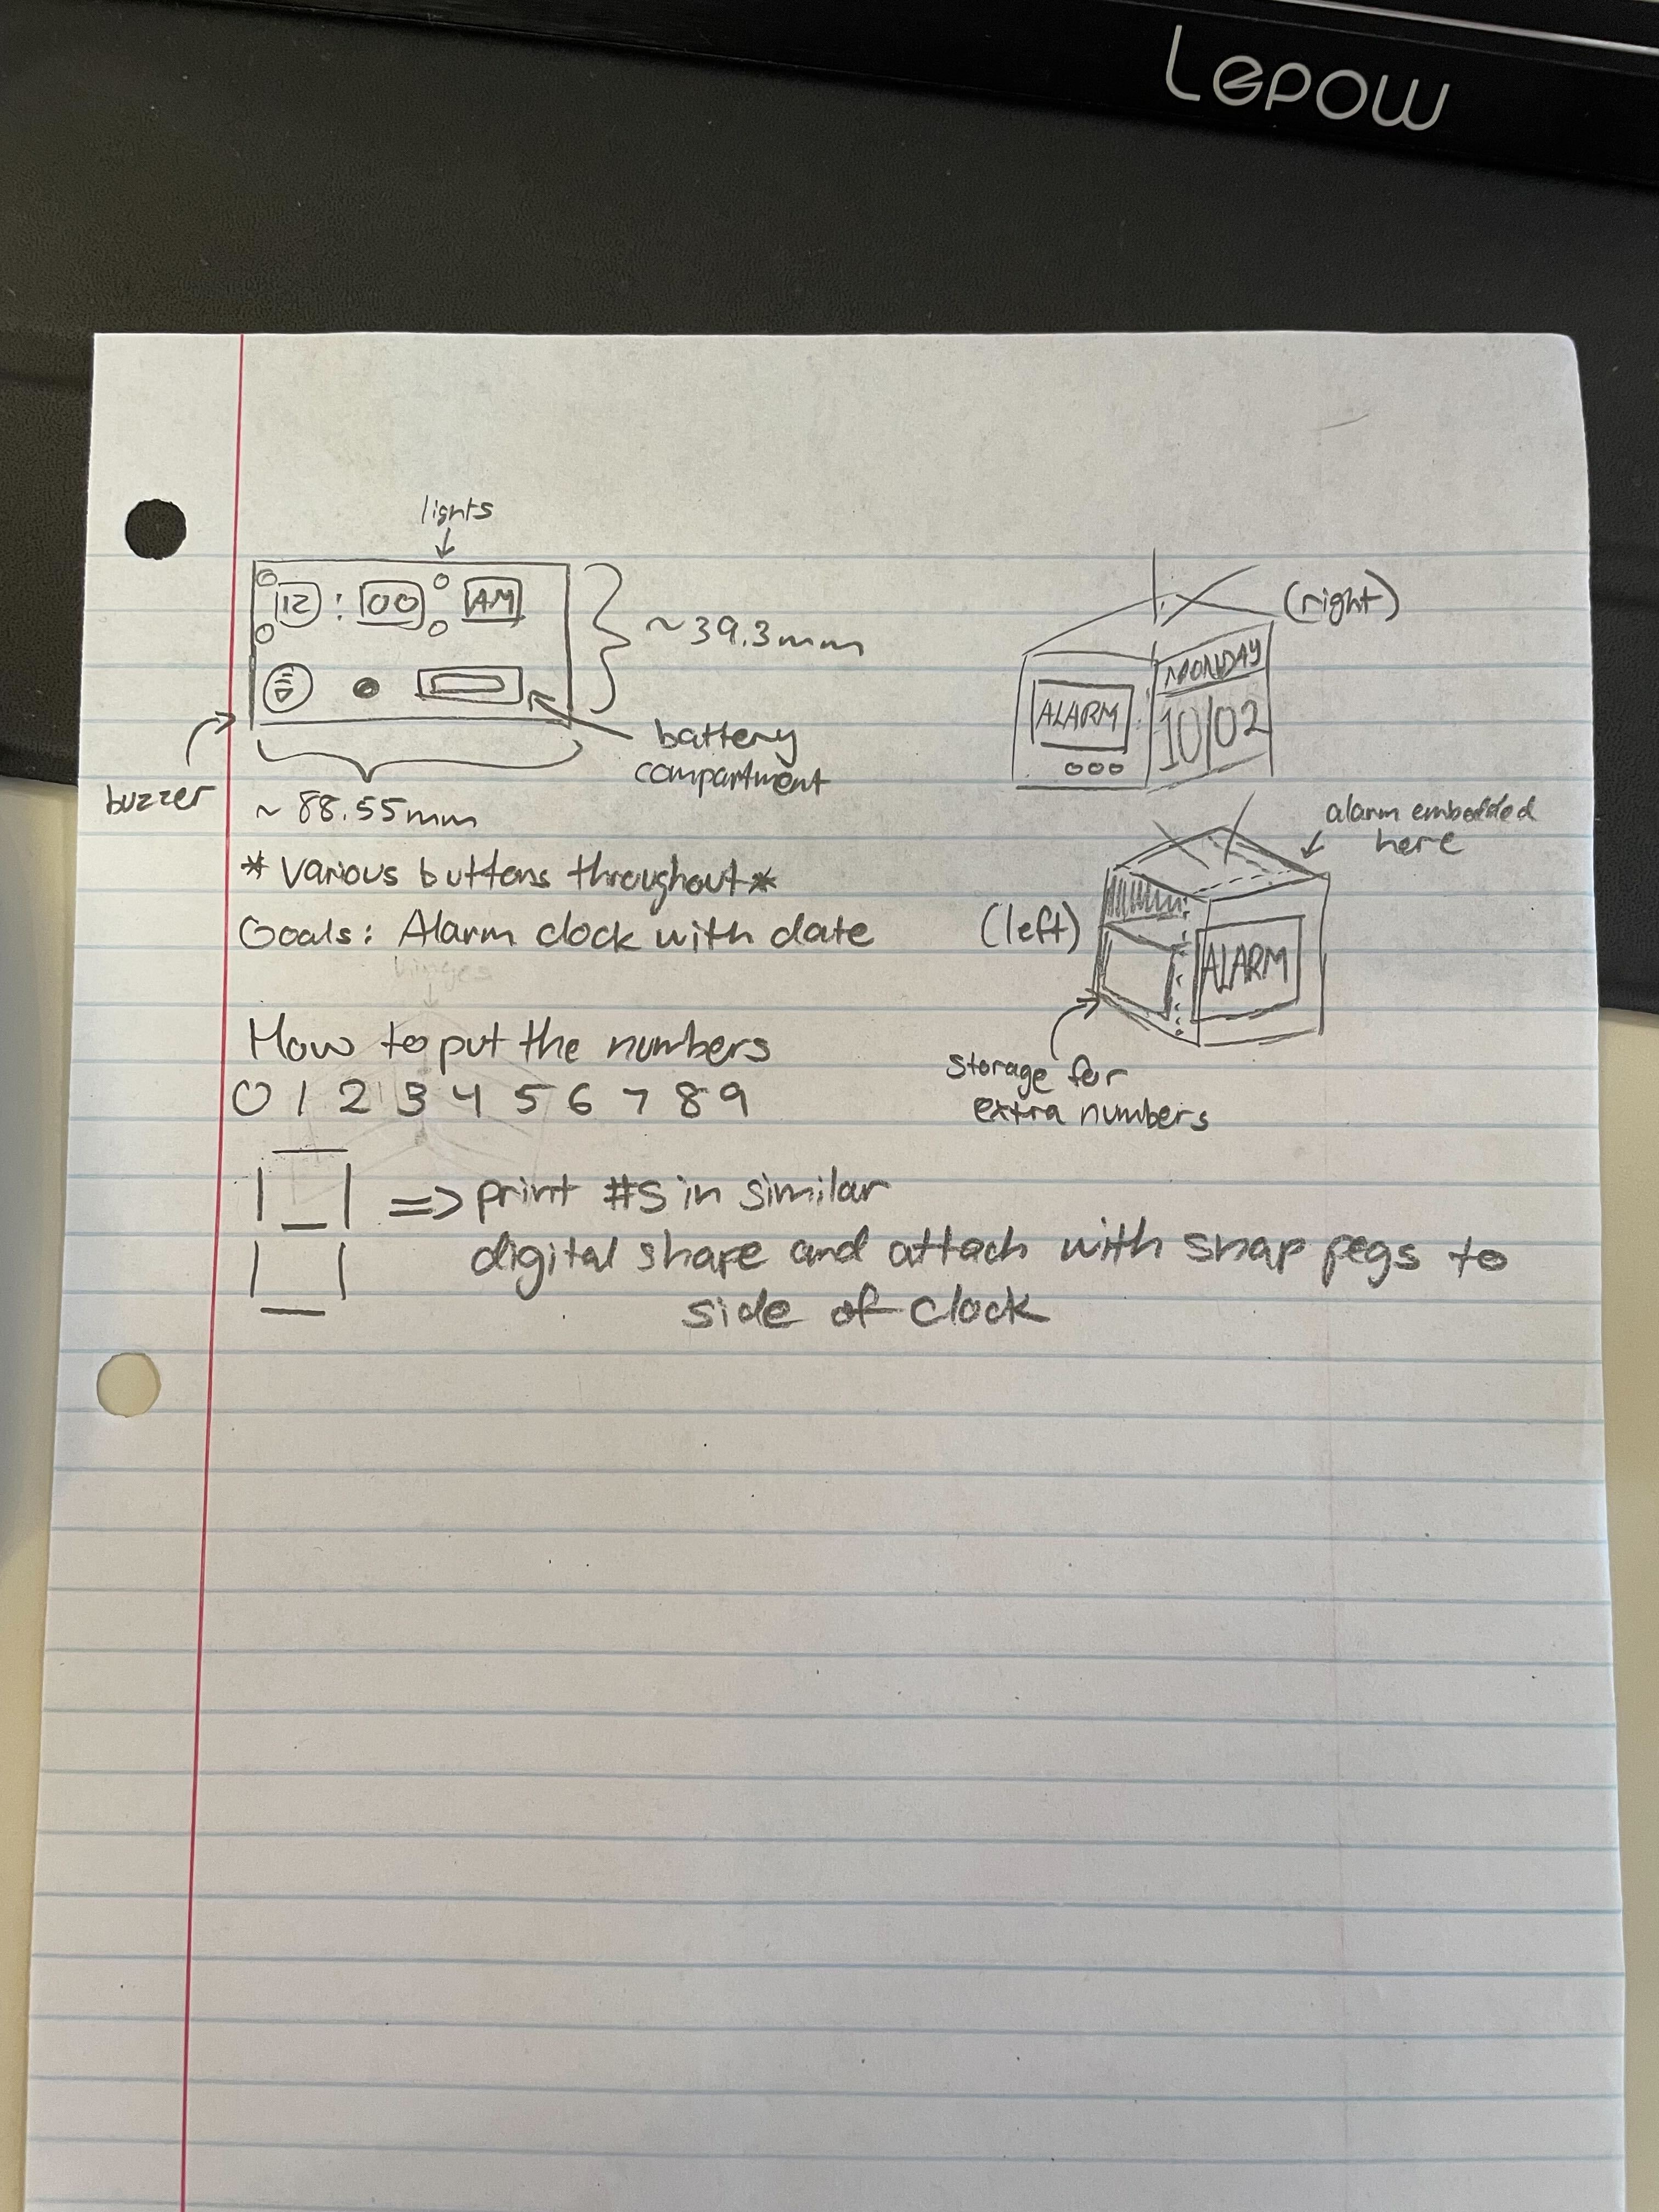 Lepow
lights
12 : 00 AM
~39.3mm
battery
compartment
buzzer
~ 88.55mm
*Various buttons throughout*
Goals: Alarm clock with date
hinges
How to put the numbers
0 1 2 3 4 5 6 7 8 9
=> print #s in similar
digital shape and attach with snap pegs to
side of clock
(right)
MONDAY
ALARM
10/02
alarm embedded
here
(left)
ALARM
storage for
extra numbers